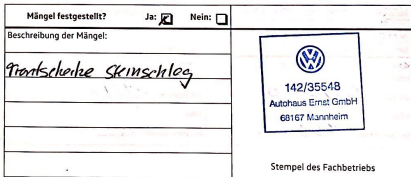 Mängel festgestellt? Ja: Nein:
Beschreibung der Mängel:
Frontscheibe Steinschlag
142/35548
Autohaus Ernst GmbH
68167 Mannheim
Stempel des Fachbetriebs